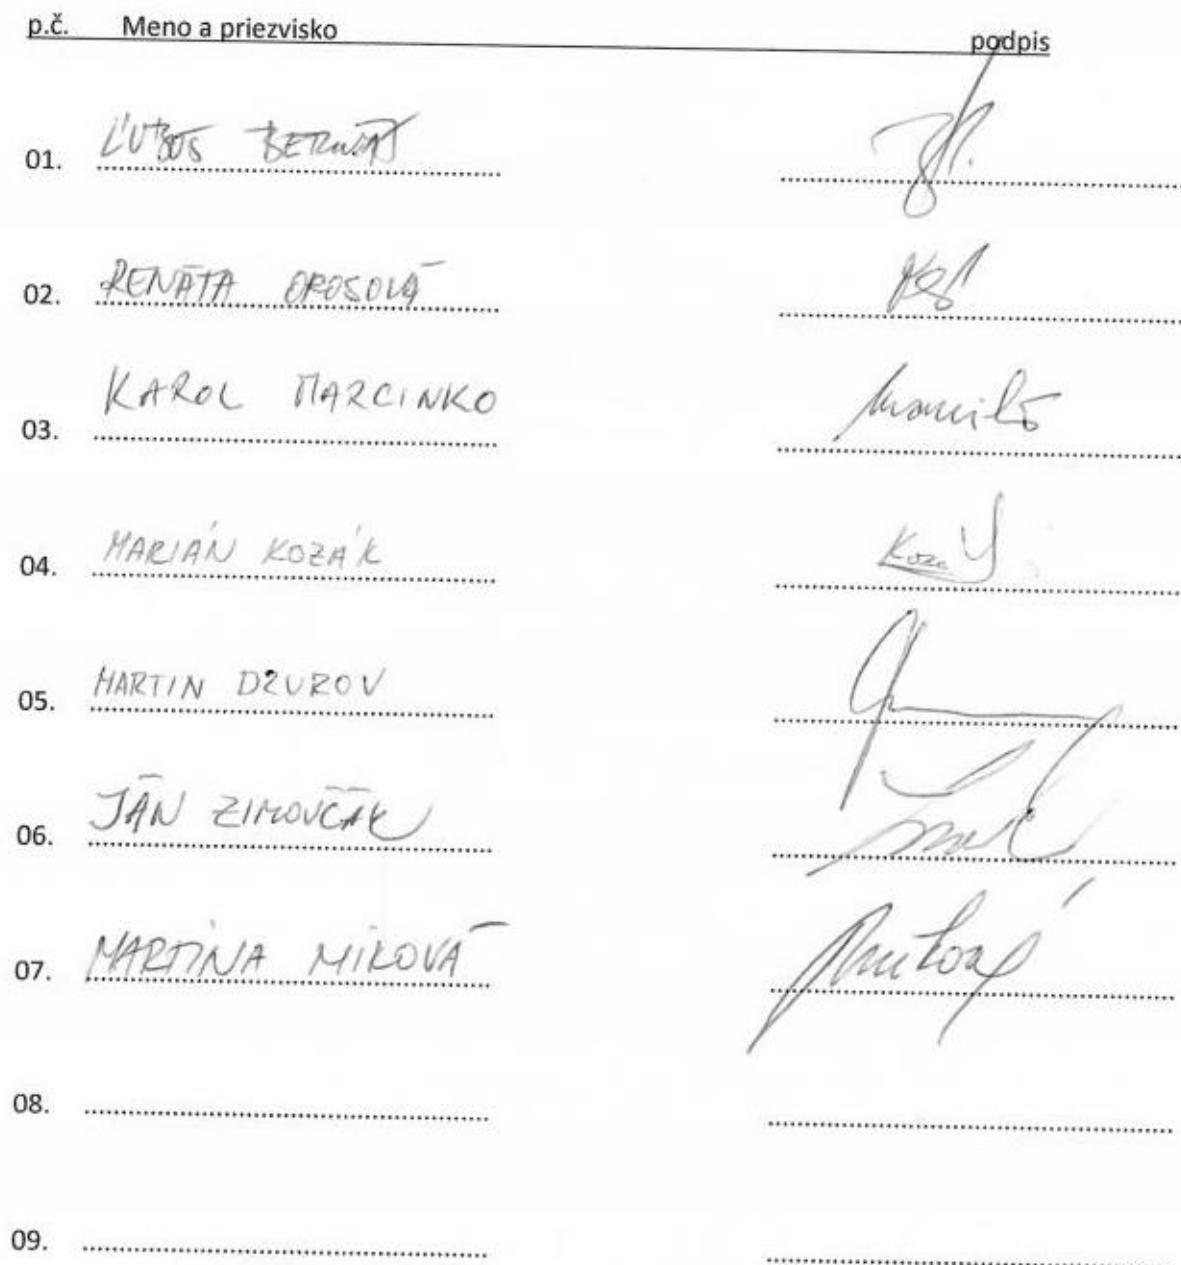 p.č. Meno a priezvisko podpis
01. ĽUBOŠ BERNÁT
02. RENÁTA OROSOVÁ
03. KAROL MARCINKO
04. MARIÁN KOZÁK
05. MARTIN DZUROV
06. JÁN ZIMOVČÁK
07. MARTINA MIKOVÁ
08.
09.